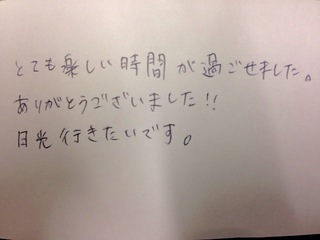 とても楽しい時間が過ごせました。
ありがとうございました!!
日光行きたいです。